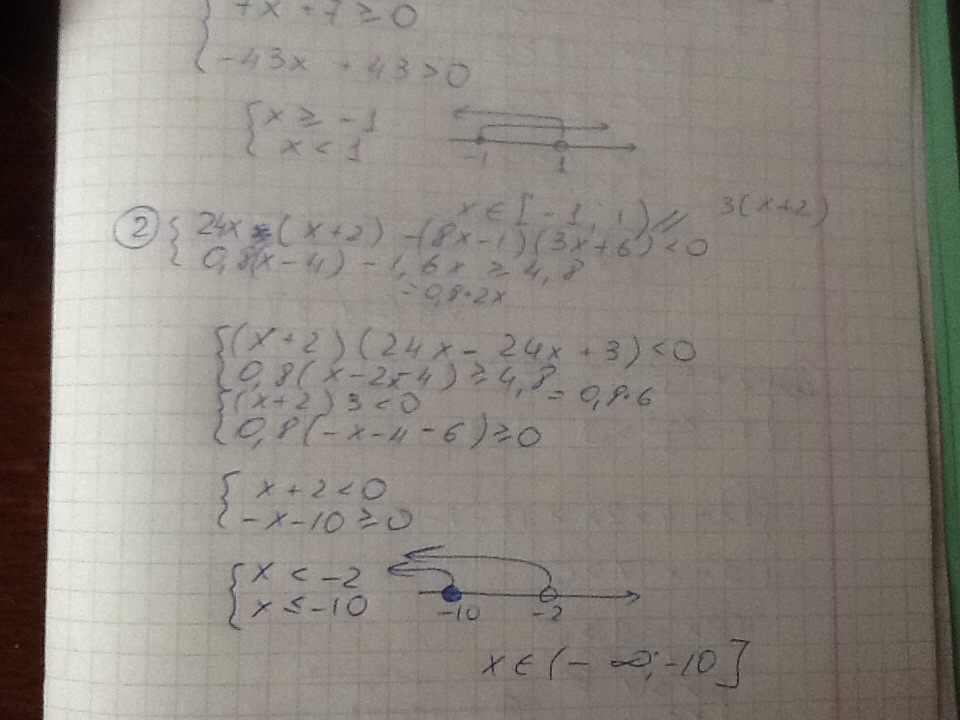 7x + 7 ≥ 0
-43x + 43 > 0
x ≥ -1
x < 1
-1 1
x ∈ [-1; 1)
② 24x (x+2) - (8x-1)(3x+6) < 0
3(x+2)
0,8(x-4) - 1,6x ≥ 4,8
= 0,8·2x
(x+2)(24x - 24x + 3) < 0
0,8(x-2x-4) ≥ 4,8
= 0,8·6
(x+2)3 < 0
0,8(-x-4-6) ≥ 0
x + 2 < 0
-x - 10 ≥ 0
x < -2
x ≤ -10
-10 -2
x ∈ (-∞; -10]